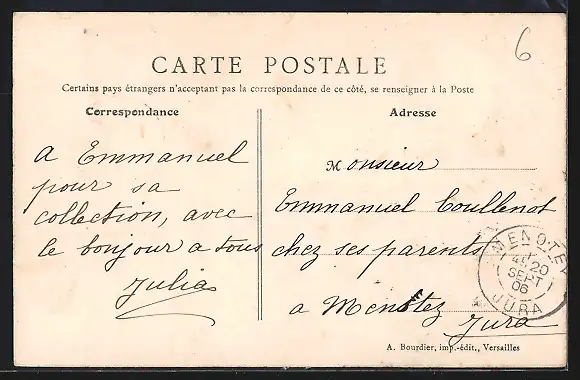 6
CARTE POSTALE
Certains pays étrangers n'acceptant pas la correspondance de ce côté, se renseigner à la Poste
Correspondance
a Emmanuel
pour sa
collection, avec
le bonjour a tous
Julia
Adresse
Monsieur
Emmanuel Coullenot
chez ses parents
a Menotez
Jura
MENOTEY
20
SEPT
06
JURA
A. Bourdier, imp.-édit., Versailles